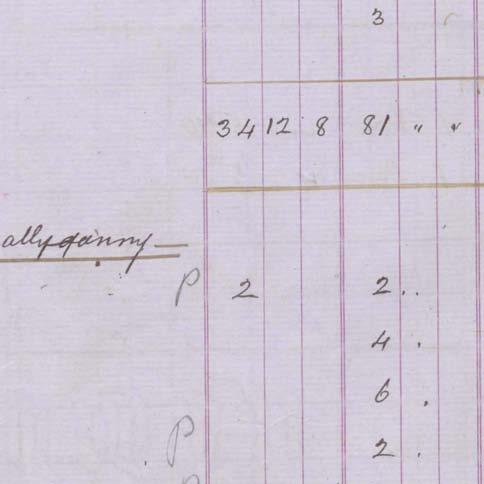 3
34 12 8 81 " "
allydanny
P 2 2 . .
4 .
6 .
P 2 .